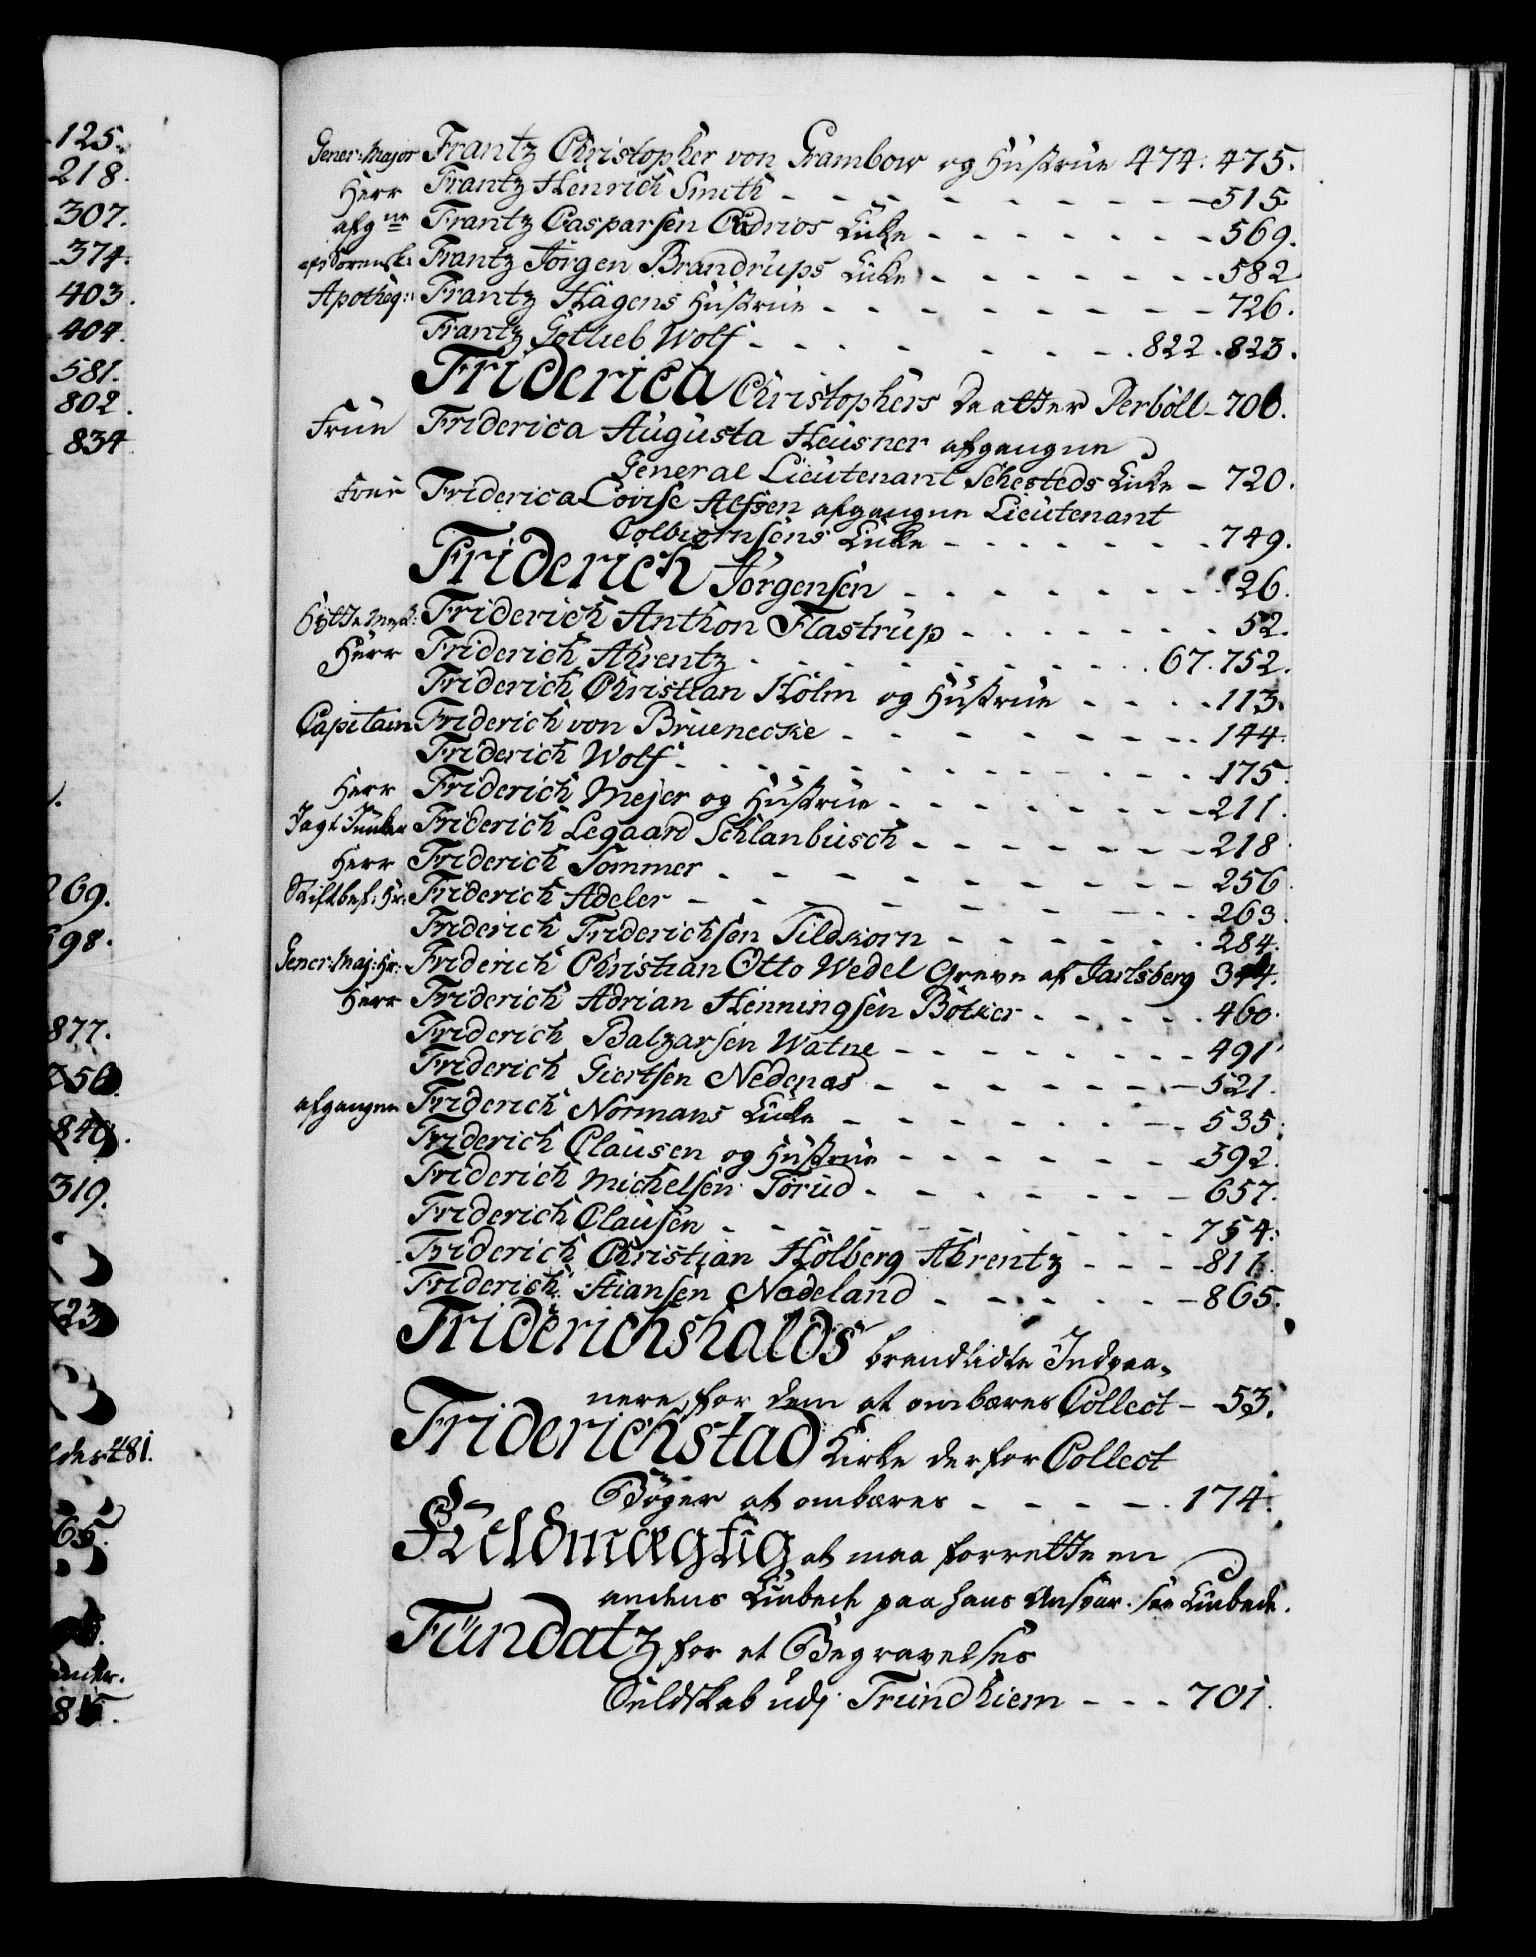 125.
218.
307.
374.
403.
404.
581.
802.
834
269.
98.
877.
319.
481.
Gener: Major Frantz Christopher von Grambow og Hustrue 474. 475.
Herr Frantz Henrich Smith - - - - - - - - - 515
afgne Frantz Caspersen Enke - - - - - - - 569.
Frantz Jörgen Brandrups Enke - - - - - - - 582
Apotheq: Frantz Hagens Hustrue - - - - - - - - 726.
Frantz Gotlieb Wolf - - - - - - - - 822. 823.
Friderica Christophers Daatter Perböll - 706.
Frue Friderica Augusta Heusner afgangne
General Lieutenant Schesteds Enke - 720.
Frue Friderica Lovise Alssen afgangne Lieutenant
Colbiörnsens Enke - - - - - - - 749.
Friderich Jörgensen - - - - - - - 26.
Friderich Anthon Flastrup - - - - - - - 52.
Herr Friderich Ahrentz - - - - - - - - - 67. 752.
Friderich Christian Holm og Hustrue - - - - 113.
Capitain Friderich von Bruenecke - - - - - - - - - 144.
Friderich Wolf - - - - - - - - - - - - 175.
Herr Friderich Mejer og Hustrue - - - - - - - - 211.
Jagt Junker Friderich Legaard Schlanbusch - - - - - - - 218
Herr Friderich Sommer - - - - - - - - - - 256
Stiftbef: Hr: Friderich Adeler - - - - - - - - - - 263.
Friderich Friderichsen Sildkorn - - - - - - - 284.
Gener: Maj: Hr: Friderich Christian Otto Wedel Greve af Jarlsberg 344.
Herr Friderich Adrian Henningsen Bötker - - - - - - 460.
Friderich Balzarsen Watne - - - - - - - - 491
Friderich Giertsen Nedenæs - - - - - - - - 521.
afgangne Friderich Normans Enke - - - - - - - - 535.
Friderich Clausen og Hustrue - - - - - - - 592.
Friderich Michelsen Torud - - - - - - - - 657.
Friderich Clausen - - - - - - - - - - - 754.
Friderich Christian Holberg Ahrentz - - - - 811.
Friderich Stiansen Nodeland - - - - - - - 865.
Friderichshalds brandlidte Indvaa-
nere, for dem at ombæres Collect - 53.
Friderichstad Kirke derfor Collect
Bøger at ombæres - - - - - 174.
Fuldmægtig at maa forrette en
andens Embede paa hans Ansvar. see Embede.
Fundatz for et Begravelses
Selskab udj Trundhiem - - - 701.